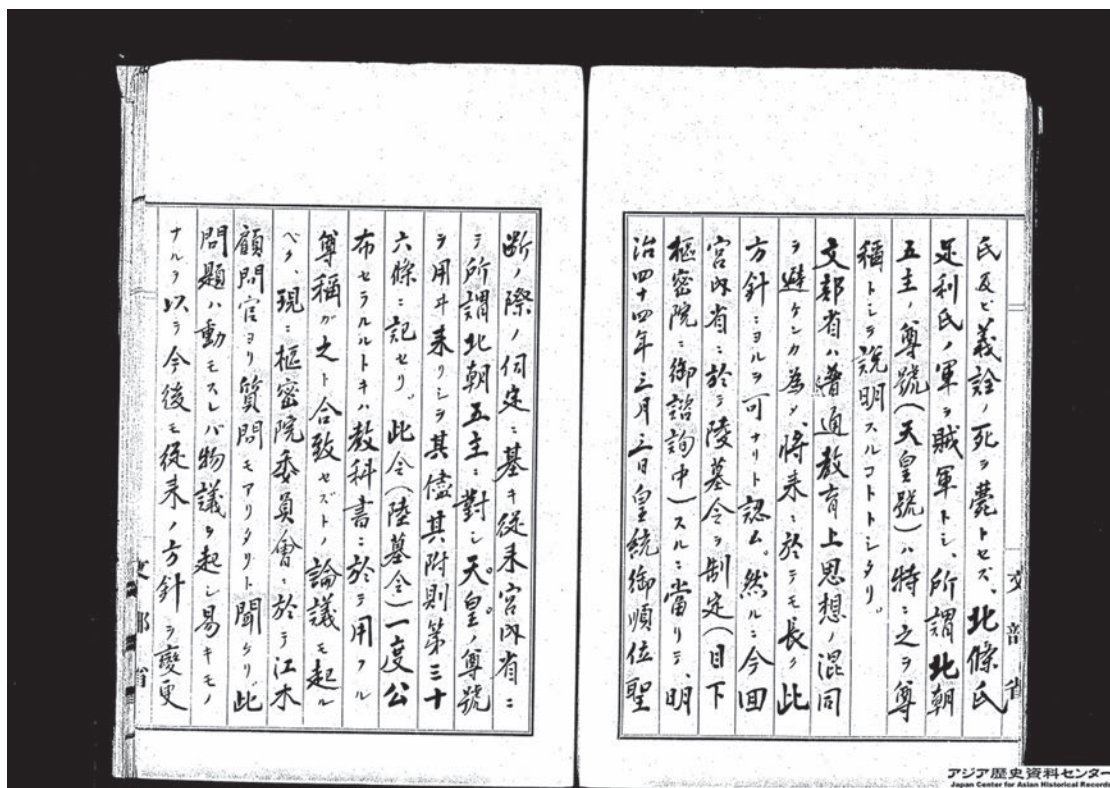 氏及ビ義詮ノ死ヲ薨トセズ、北條氏
足利氏ノ軍ヲ賊軍トシ、所謂北朝
五主ノ尊號(天皇號)ハ特ニ之ヲ尊
稱トシテ説明スルコトトシタリ。
文部省ハ普通教育上思想ノ混同
ヲ避ケンカ為メ、将来ニ於テモ長ク此
方針ニヨルヲ可ナリト認ム。然ルニ今回
宮内省ニ於テ陵墓令ヲ制定(目下
樞密院ニ御諮詢中)スルニ當リテ、明
治四十四年三月三日皇統御順位聖
文部省
断ノ際ノ伺定ニ基キ従来宮内省ニ
テ所謂北朝五主ニ對シ天皇ノ尊號
ヲ用ヰ来リシヲ其儘其附則第三十
六條ニ記セリ。此令(陵墓令)一度公
布セラルルトキハ教科書ニ於テ用フル
尊稱ガ之ト合致セズトノ論議モ起ル
ベク、現ニ樞密院委員會ニ於テ江木
顧問官ヨリ質問モアリタリト聞ケリ。此
問題ハ動モスレバ物議ヲ起シ易キモノ
ナルヲ以テ今後モ従来ノ方針ヲ變更
文部省
アジア歴史資料センター
Japan Center for Asian Historical Records